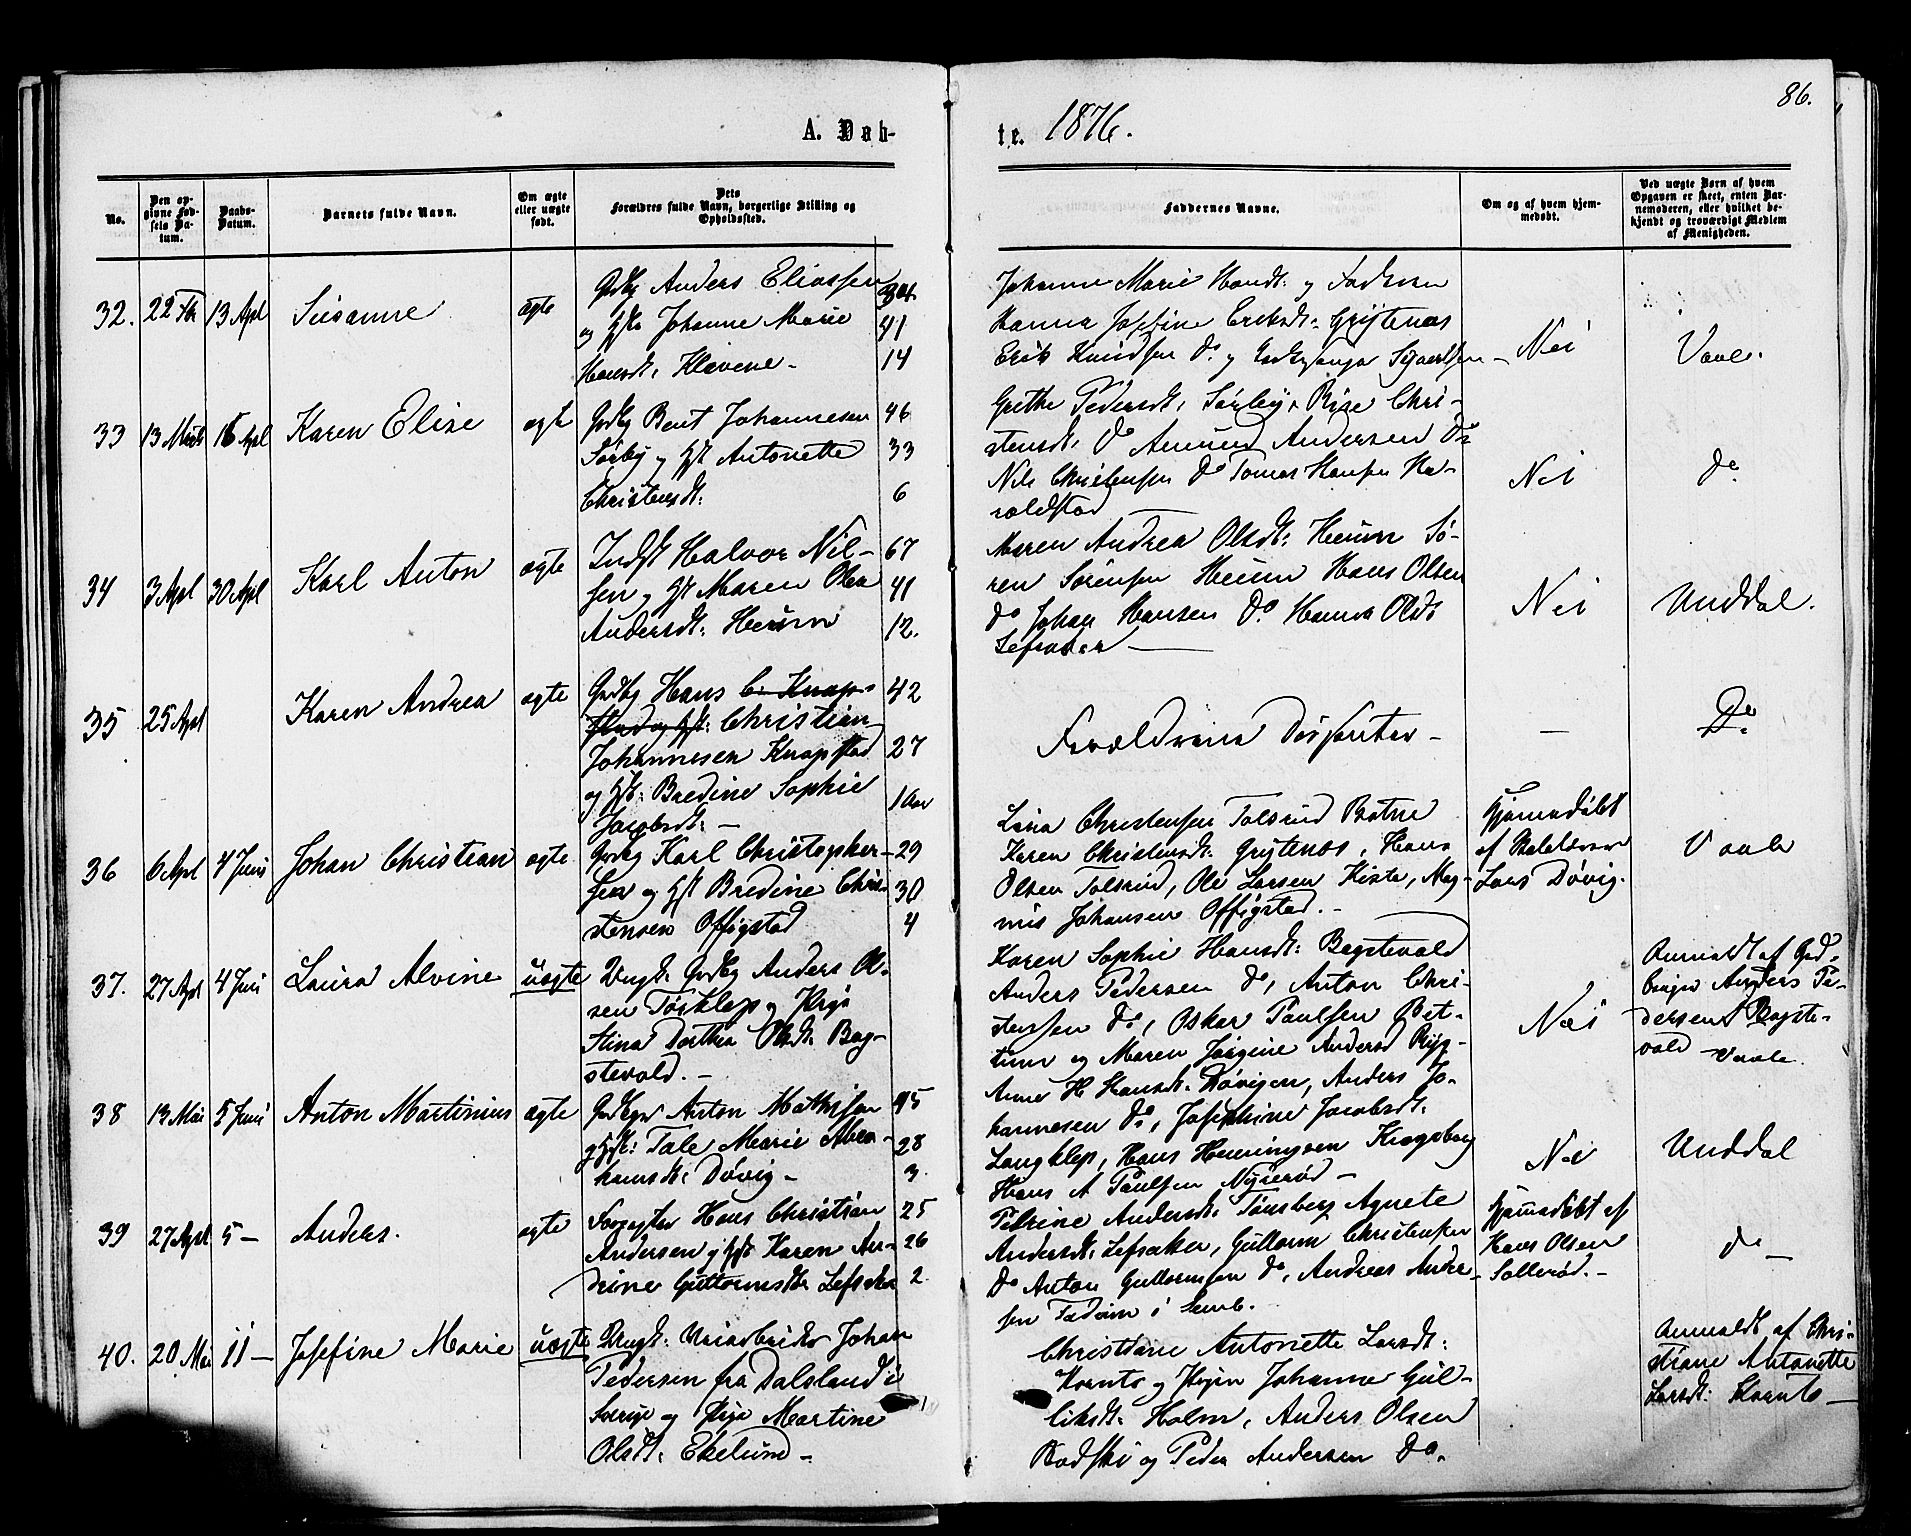 86.
A. Døb-
te. 1876.
No.
Den op-
givne Fød-
sels Da-
tum.
Daabs-
Datum.
Barnets fulde Navn.
Om ægte
eller uægte
født.
Dets
Forældres fulde Navn, borgerlige Stilling og
Opholdssted.
Faddernes Navne.
Om og af hvem hjem-
medøbt.
Ved uægte Børn af hvem
Opgaven er skeet, enten Bar-
nemoderen, eller hvilket be-
kjendt og troværdigt Medlem
af Menigheden.
32. 22 Fb 13 Apl Susanne ægte
Grdbg Anders Eliassen
og Hst Johanne Marie 41
Hansdt. Klavene - 14
Johanne Marie Hansdt: og
Hanna Josefine Eriksdt: Grytenæs
Erik Knudsen do. og Sivertsen -
Nei
Vaale.
33 13 Marts 16 Apl Karen Elise ægte
Grdbg Bent Johannesen 46
Sørby og Hst Antonette 33
Christensdt: 6
Grethe Pedersdt: Sørby, Chri-
stensdt: do Amund Andersen do
Nils Christensen do Tomas Hansen Ha-
raldstad
Nei
do
34 3 Apl 30 Apl Karl Anton ægte
Indst Halvor Nil- 67
sen og Hst Maren Olea 41
Andersdt: Heum 12.
Maren Andrea Olsdt: Heum Sø-
ren Sørensen Heum Hans Olsen
do Johan Hansen Do Hanna Olsdt
Lefsaker —
Nei
Unddal.
35 25 Apl Karen Andrea ægte
Grdbg Hans C. Knap- 42
stad og Hst: Christian
Johannesen Knapstad 27
og Hst: Bredine Sophie 1 Aar
Jacobsdt: -
Forældrene Dissenter -
-
Do
36 6 Apl 4 Juni Johan Christian ægte
Grdbg Karl Christopher- 29
sen og Hst Bredine Chris- 30
tensen Offigstad 4
Lina Christensen Tolsrud
Karen Christensdt: Grytenæs, Hans
Olsen Tolsrud, Ole Larsen Kiste, Mag-
nus Johansen Offigstad. -
Hjemmedøbt
af Skolelærer
Lars Døvig.
Vaale
37. 27 Apl 4 Juni Laura Alvine uægte
Ungk: Grdbg Anders Ol-
sen Tørklep og Piga
Stina Dorthea Olsdt: Bag-
stevold. -
Karen Sophie Hansdt: Bagstevold
Anders Pedersen do, Anton Chri-
stensen do, Oskar Paulsen Bet-
tum og Maren Jørgine Andersd
Nei
Anmeldt af Grd-
bruger Anders Pe-
dersen Bagste-
vold - Vaale.
38 13 Mai 5 Juni Anton Martinius ægte
Anton Mathisen 45
og Hst: Tale Marie Abra- 28
hamsdt: Døvig - 3.
Anne H Hansdt: Døvigen, Anders Jo-
hannesen do, Josephine Jacobsdt:
Langklep, Hans Henningsen Krogsborg
Hans A Paulsen Nyserød -
Nei
Unddal
39 27 Apl 5 — Anders. ægte
Forpagter Hans Christian 25
Andersen og Hst Karen An- 26
drine Guttormsdt: Lefsaker 2.
Petrine Andersdt: Tønsberg Agnete
Andersdt: Lefsaker, Guttorm Christensen
do Anton Guttormsen do, Andreas Ander-
sen Fadum i Semb.
Hjemmedøbt af
Hans Olsen
Sollerød. -
do —
40. 20 Mai 11 — Josefine Marie uægte
Ungk: Johan
Pedersen fra Dalsland i
Sverige og Piga Martine
Olsdt: Ekelund -
Christiane Antonette Larsdt:
Kornto og Pigen Johanne Gul-
liksdt: Holm, Anders Olsen
Bodski og Peder Andersen do.
Anmeldt af Chri-
stiane Antonette
Larsdt: Kornto -